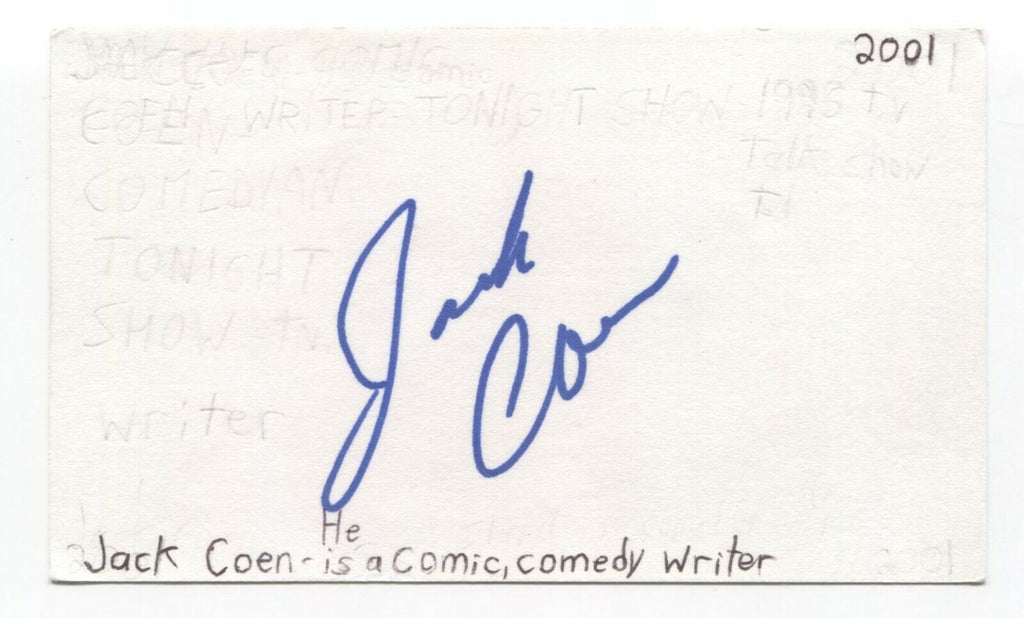 2001
Comic
COEN WRITER-TONIGHT SHOW 1993 tv
Talk show
COMEDIAN
TONIGHT
SHOW-tv
writer
Jack
Coen
He
Jack Coen-is a Comic, comedy writer